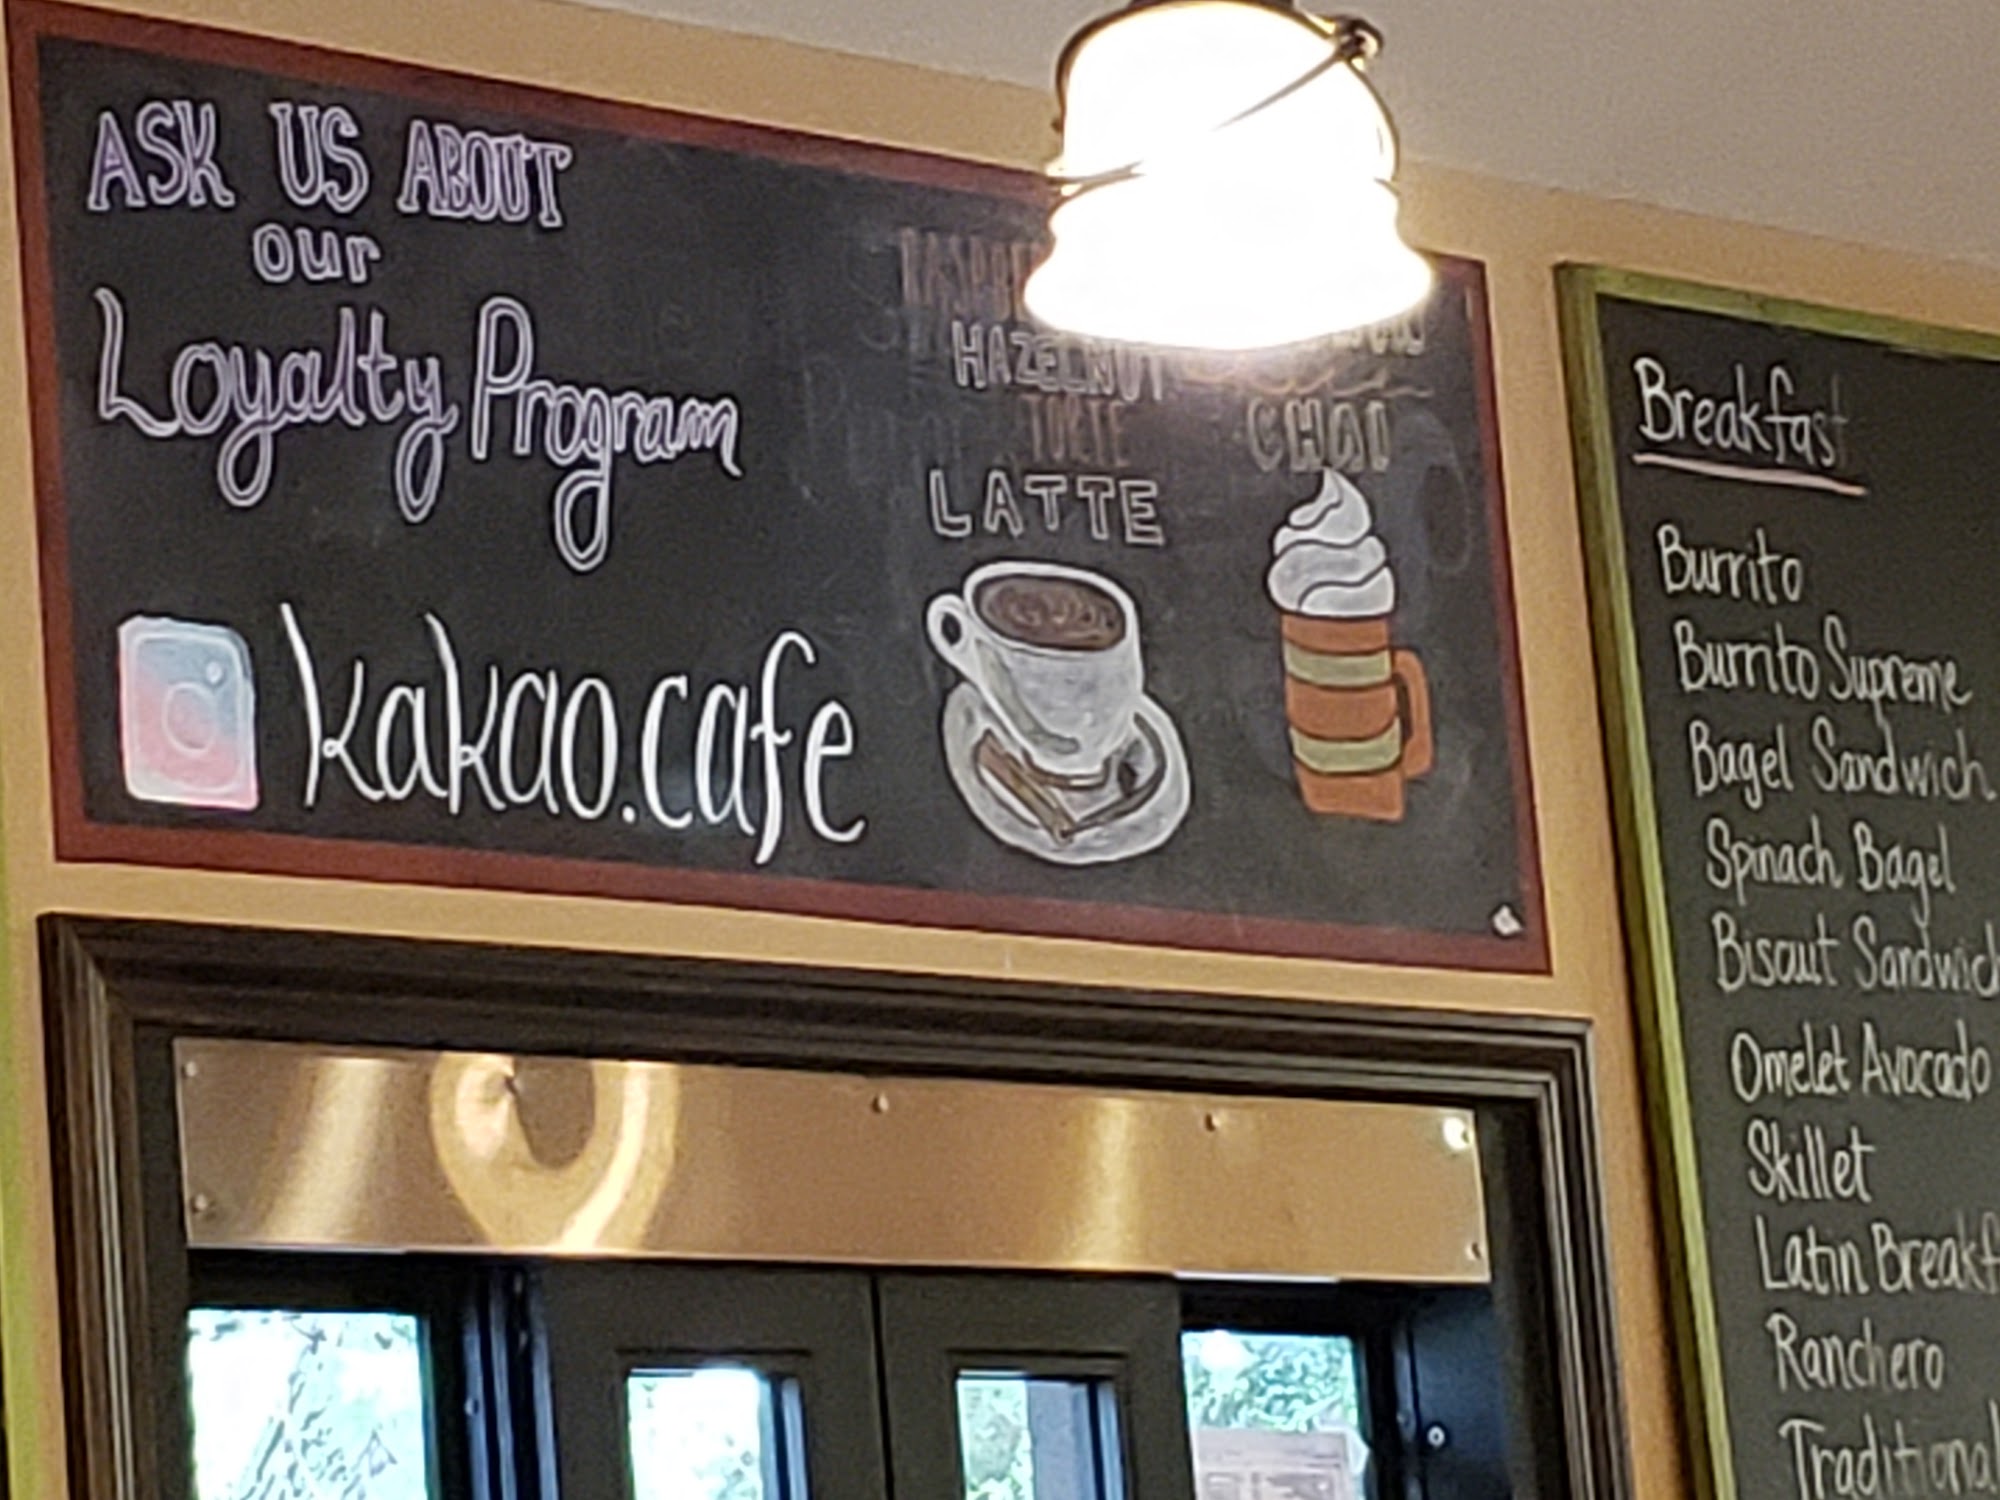 ASK US ABOUT
our
Loyalty Program
kakao.cafe
HAZELNUT
TORTE
LATTE
CHAI
Breakfast
Burrito
Burrito Supreme
Bagel Sandwich
Spinach Bagel
Biscuit Sandwich
Omelet Avocado
Skillet
Latin Breakf
Ranchero
Traditional